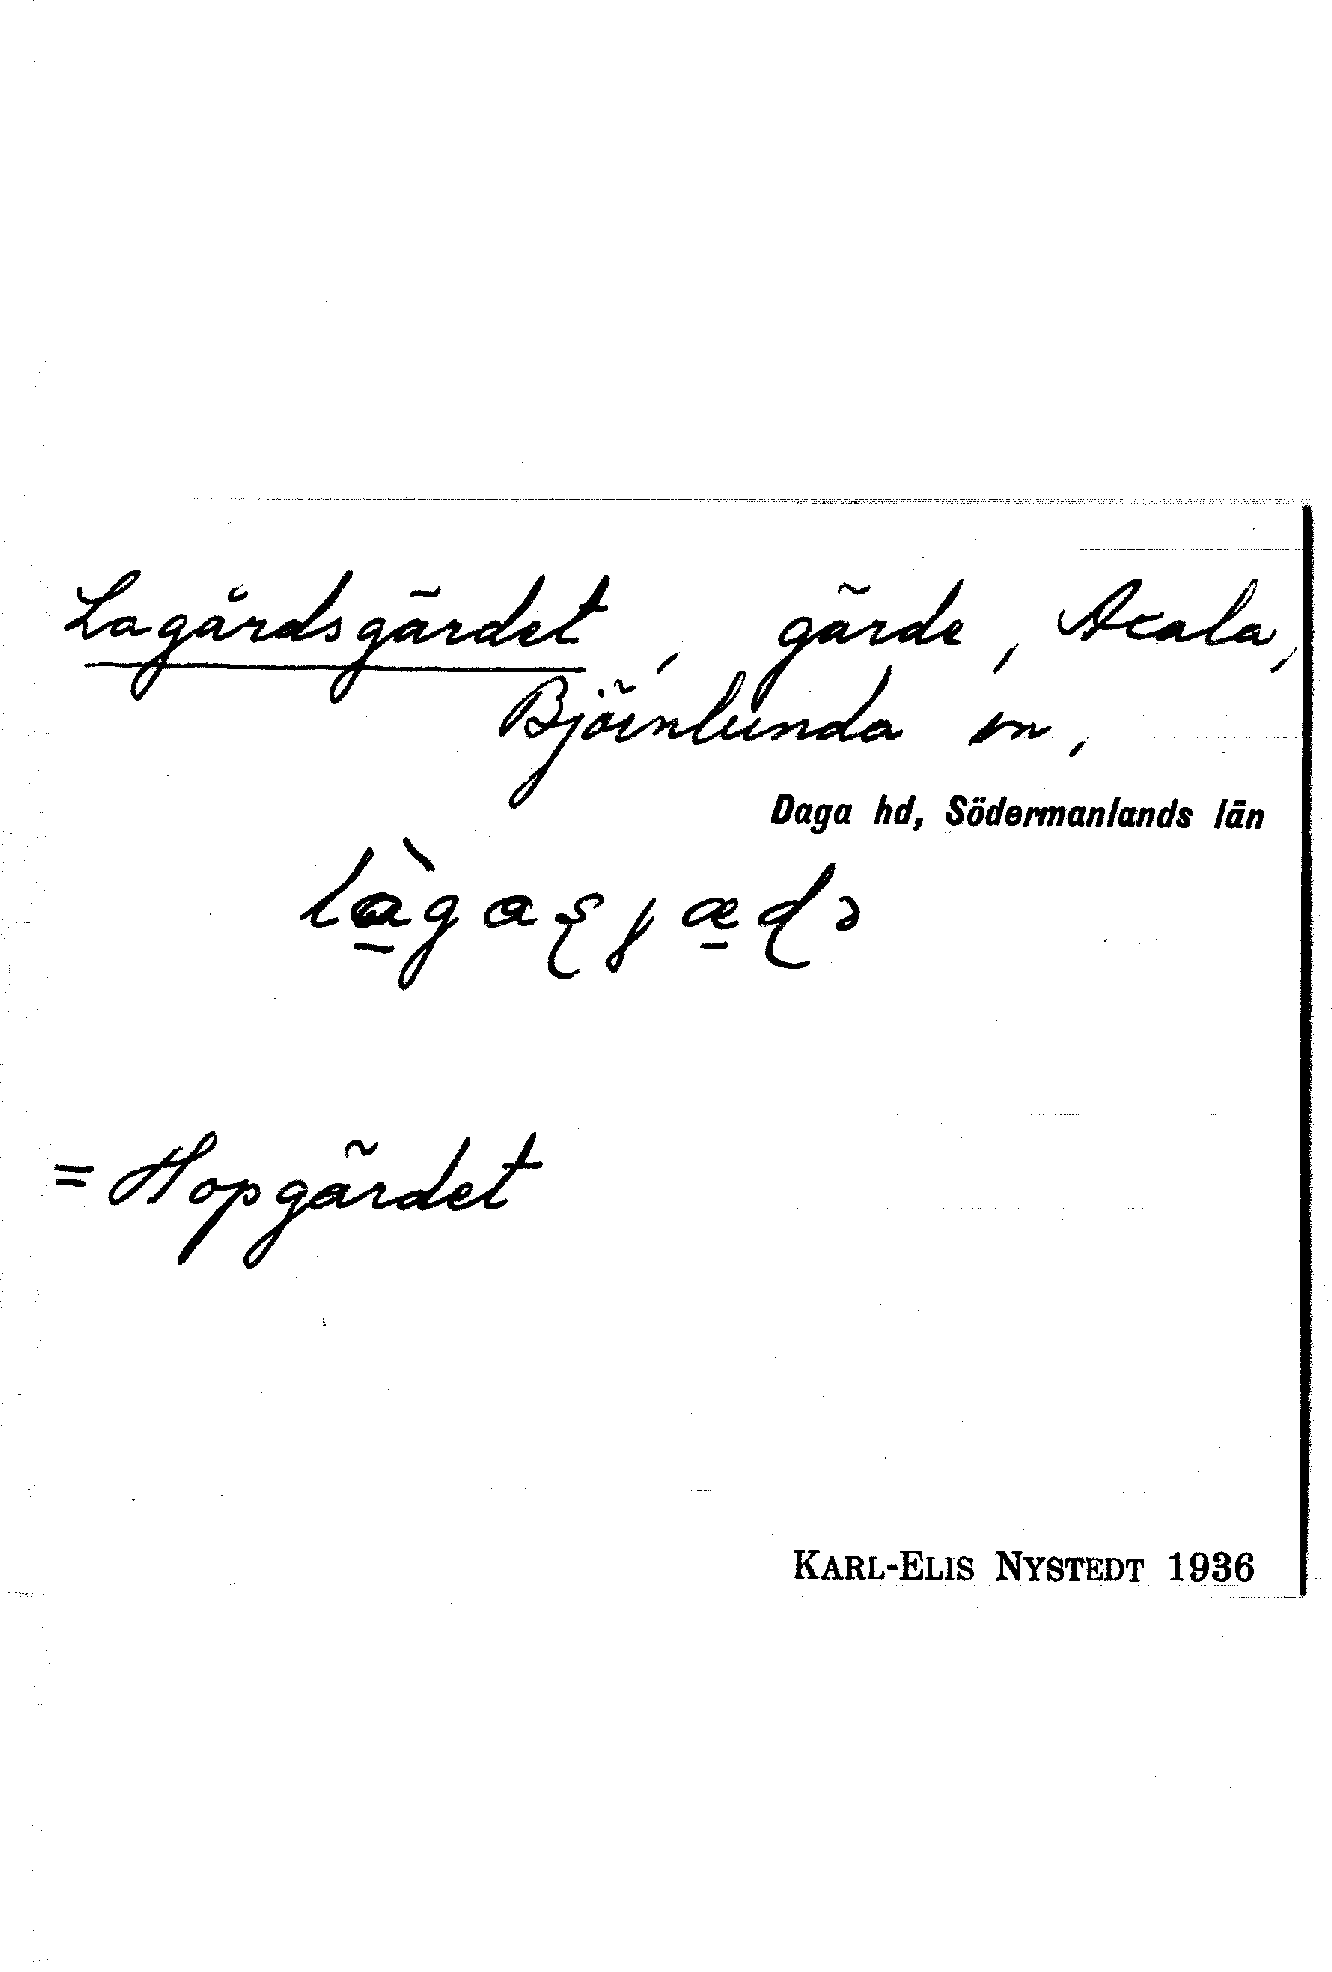 Lagårdsgärdet, gärde, Axala,
Björnlunda sn,
Daga hd, Södermanlands län
= Hopgärdet
KARL-ELIS NYSTEDT 1936